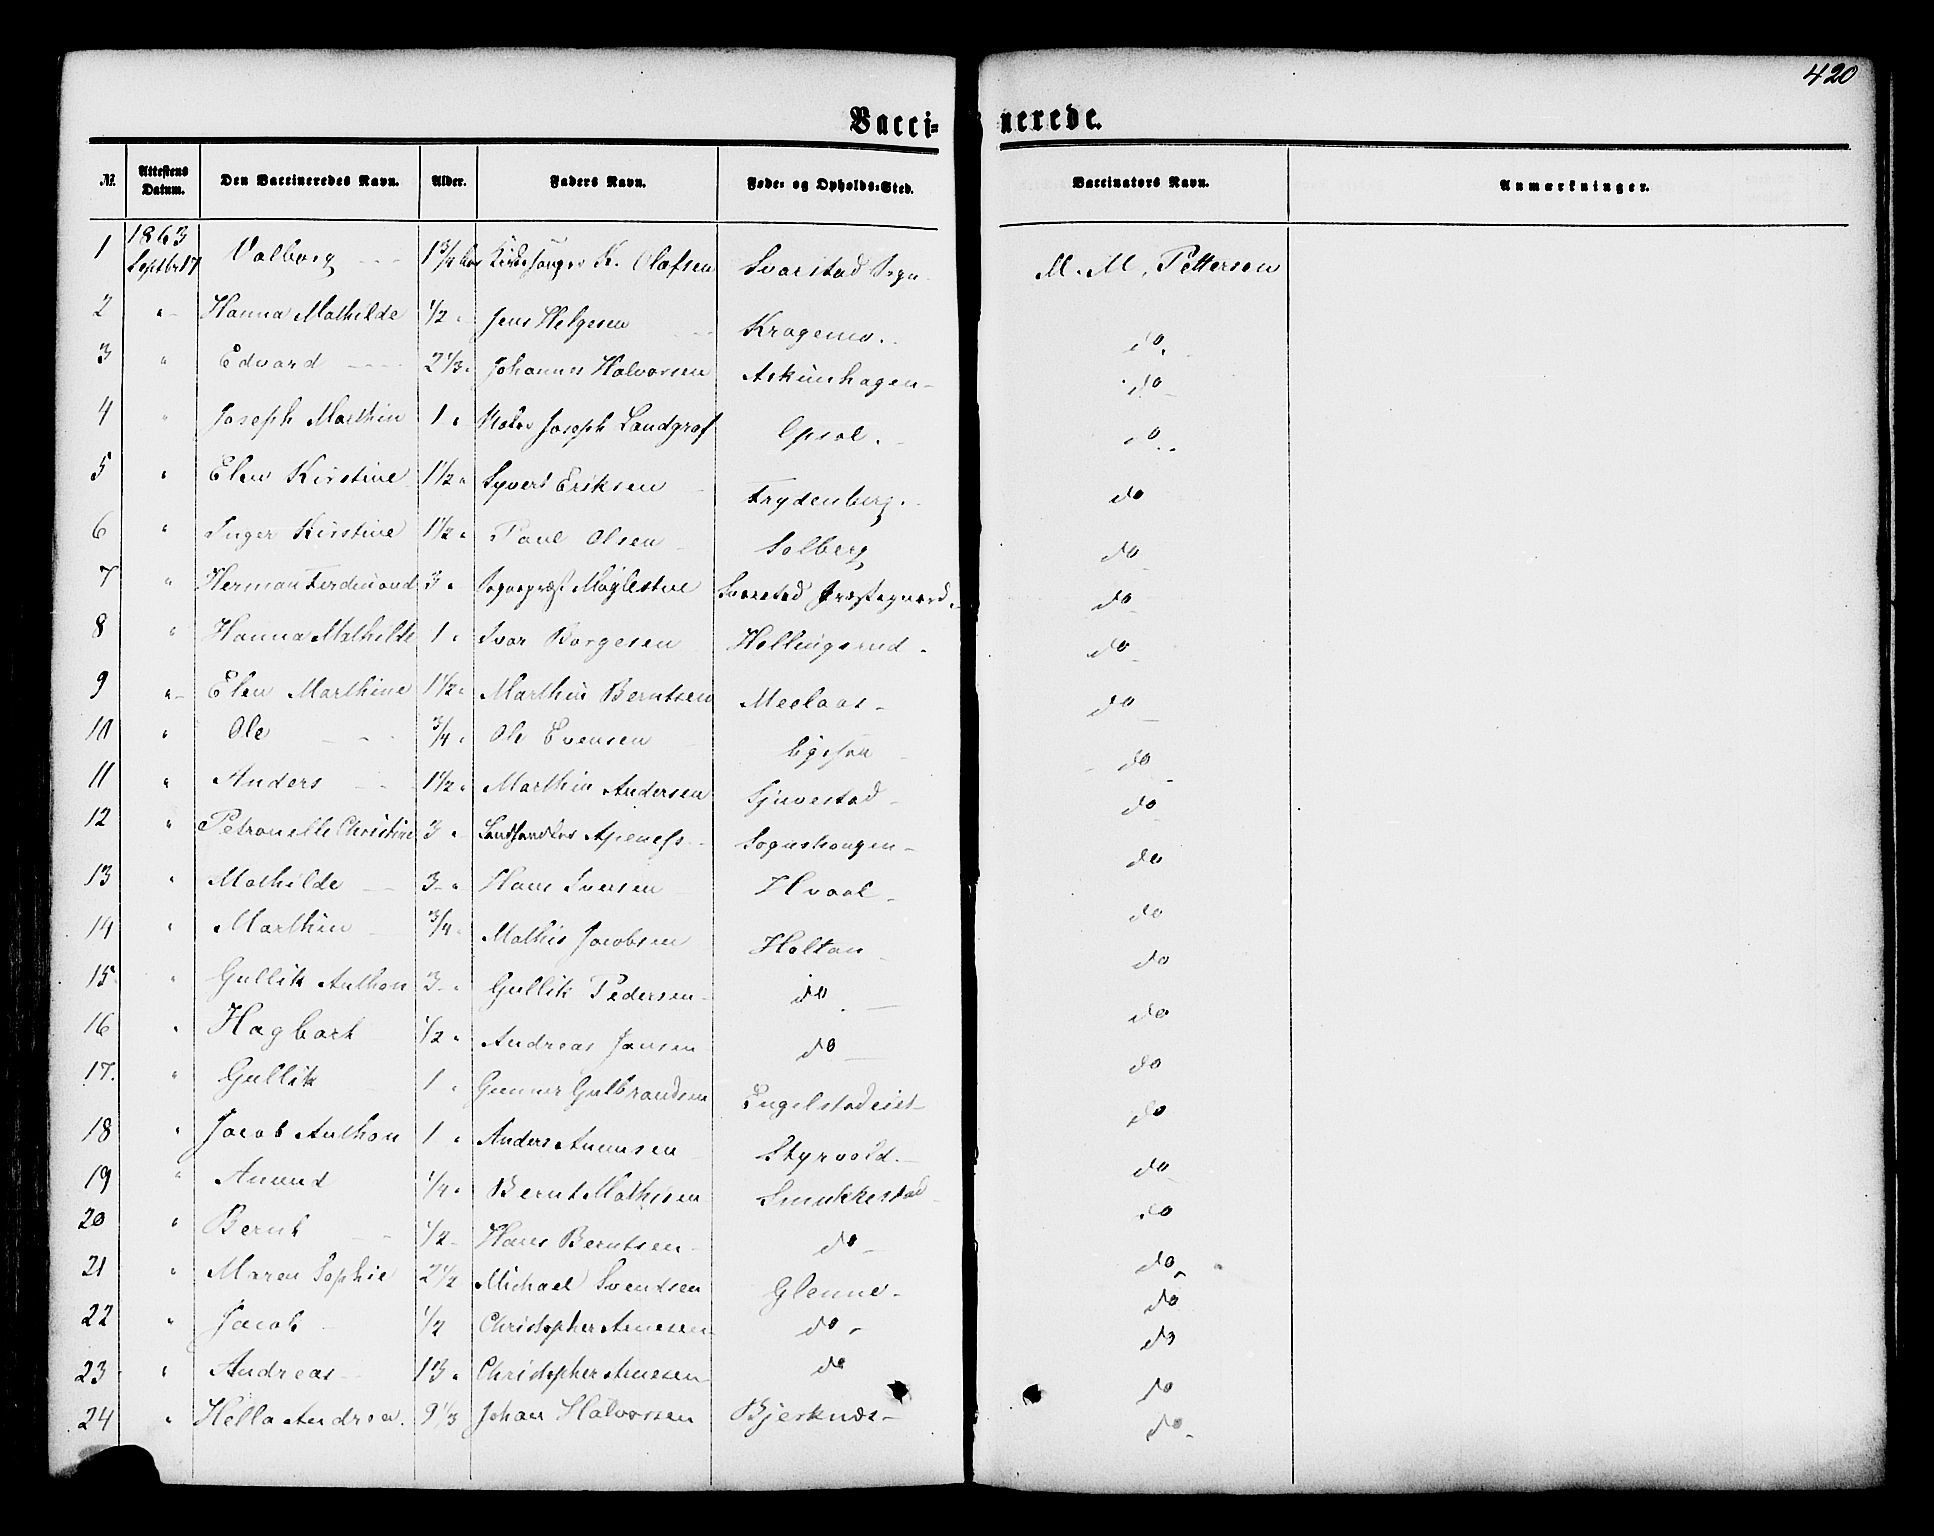 420
Vacci- nerede.
№ Attestens Datum. Den Vaccineredes Navn. Alder. Faders Navn. Føde- og Opholds-Sted. Vaccinators Navn. Anmærkninger.
1863
1 Septbr 17 Valborg 1 3/4 Kirkesanger K. Olafsen Svarstad Sogn M. M. Pettersen
2 " Hanna Mathilde 1/2 " Jens Helgesen Kragemo. do.
3 " Edvard 2 1/3 " Johannes Halvorsen Askimhagen do
4 " Joseph Marthin 1 " Joseph Landgraf Opsal. do.
5 " Elen Kirstine 1 1/2 " Syvert Eriksen Frydenberg. do
6 " Inger Kirstine 1 1/2 " Paul Olsen Solberg do
7 " Herman Ferdinand 3 " Sognepræst Møglestue Svarstad Præstegaard do
8 " Hanna Mathilde 1 " Ivar Borgesen Hellingsrud do
9 " Elen Marthine 1 1/2 " Marthin Berntsen Meelaas do
10 " Ole 3/4 " Ole Evensen do
11 " Anders 1 1/2 " Marthin Andersen Sjuvestad do
12 " Petronelle Christine 3 " Landhandler Apeness Sognshaugen do
13 " Mathilde 3 " Hans Iversen Hvaal do
14 " Marthin 3/4 " Mathis Jacobsen Holtan do
15 " Gullik Anthon 3 " Gullik Pedersen do do
16 " Hagbart 1/2 " Andreas Jansen do do
17. " Gullik 1 " Gunner Gulbrandsen Engelstadeiet do
18 " Jacob Anthon 1 " Anders Amunsen Styrvold. do
19 " Amund 1/4 " Bernt Mathisen Smukkestad do
20 " Bernt 1/2 Hans Berntsen do do
21 " Maren Sophie 2 1/2 Michael Sventsen Glenne do
22 " Jacob 1/2 Christopher Arnesen do do
23 " Andreas 13 " Christopher Arnesen do do
24 " Hella Andrea. 9 1/3 Johan Halvorsen Bjerknæs do
do.